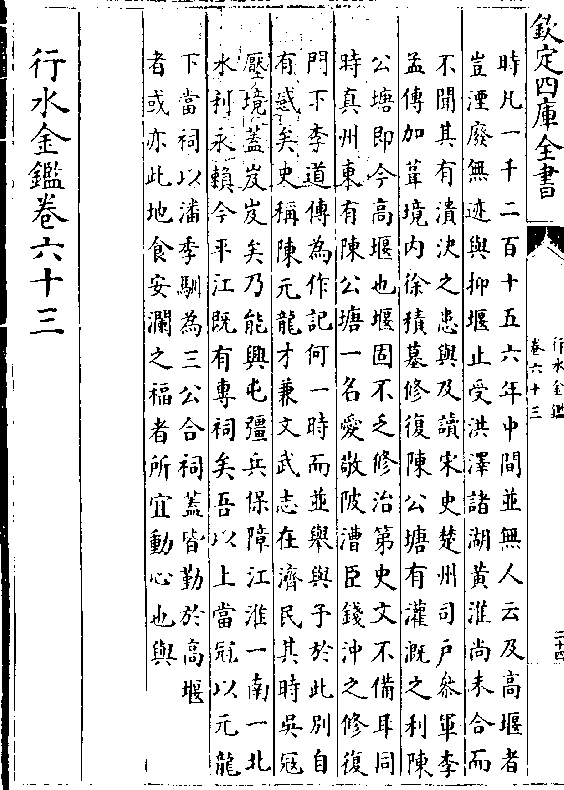 欽定四庫全書
行水金鑑
卷六十三
二十四
時凡一千二百十五六年中間並無人云及高堰者
豈湮廢無迹與抑堰止受洪澤諸湖黃淮尚未合而
不聞其有潰決之患與及讀宋史楚州司戶叅軍李
孟傳加葺境內徐積墓修復陳公塘有灌溉之利陳
公塘即今高堰也堰固不乏修治第史文不備耳同
時真州東有陳公塘一名愛敬陂漕臣錢沖之修復
門下李道傳為作記何一時而並舉與予於此別自
有感矣史稱陳元龍才兼文武志在濟民其時吳冦
壓境蓋岌岌矣乃能興屯彊兵保障江淮一南一北
水利永賴今平江既有專祠矣吾以上當冠以元龍
下當祠以潘季馴為三公合祠蓋皆勤於高堰
者或亦此地食安瀾之福者所宜動心也與
行水金鑑卷六十三